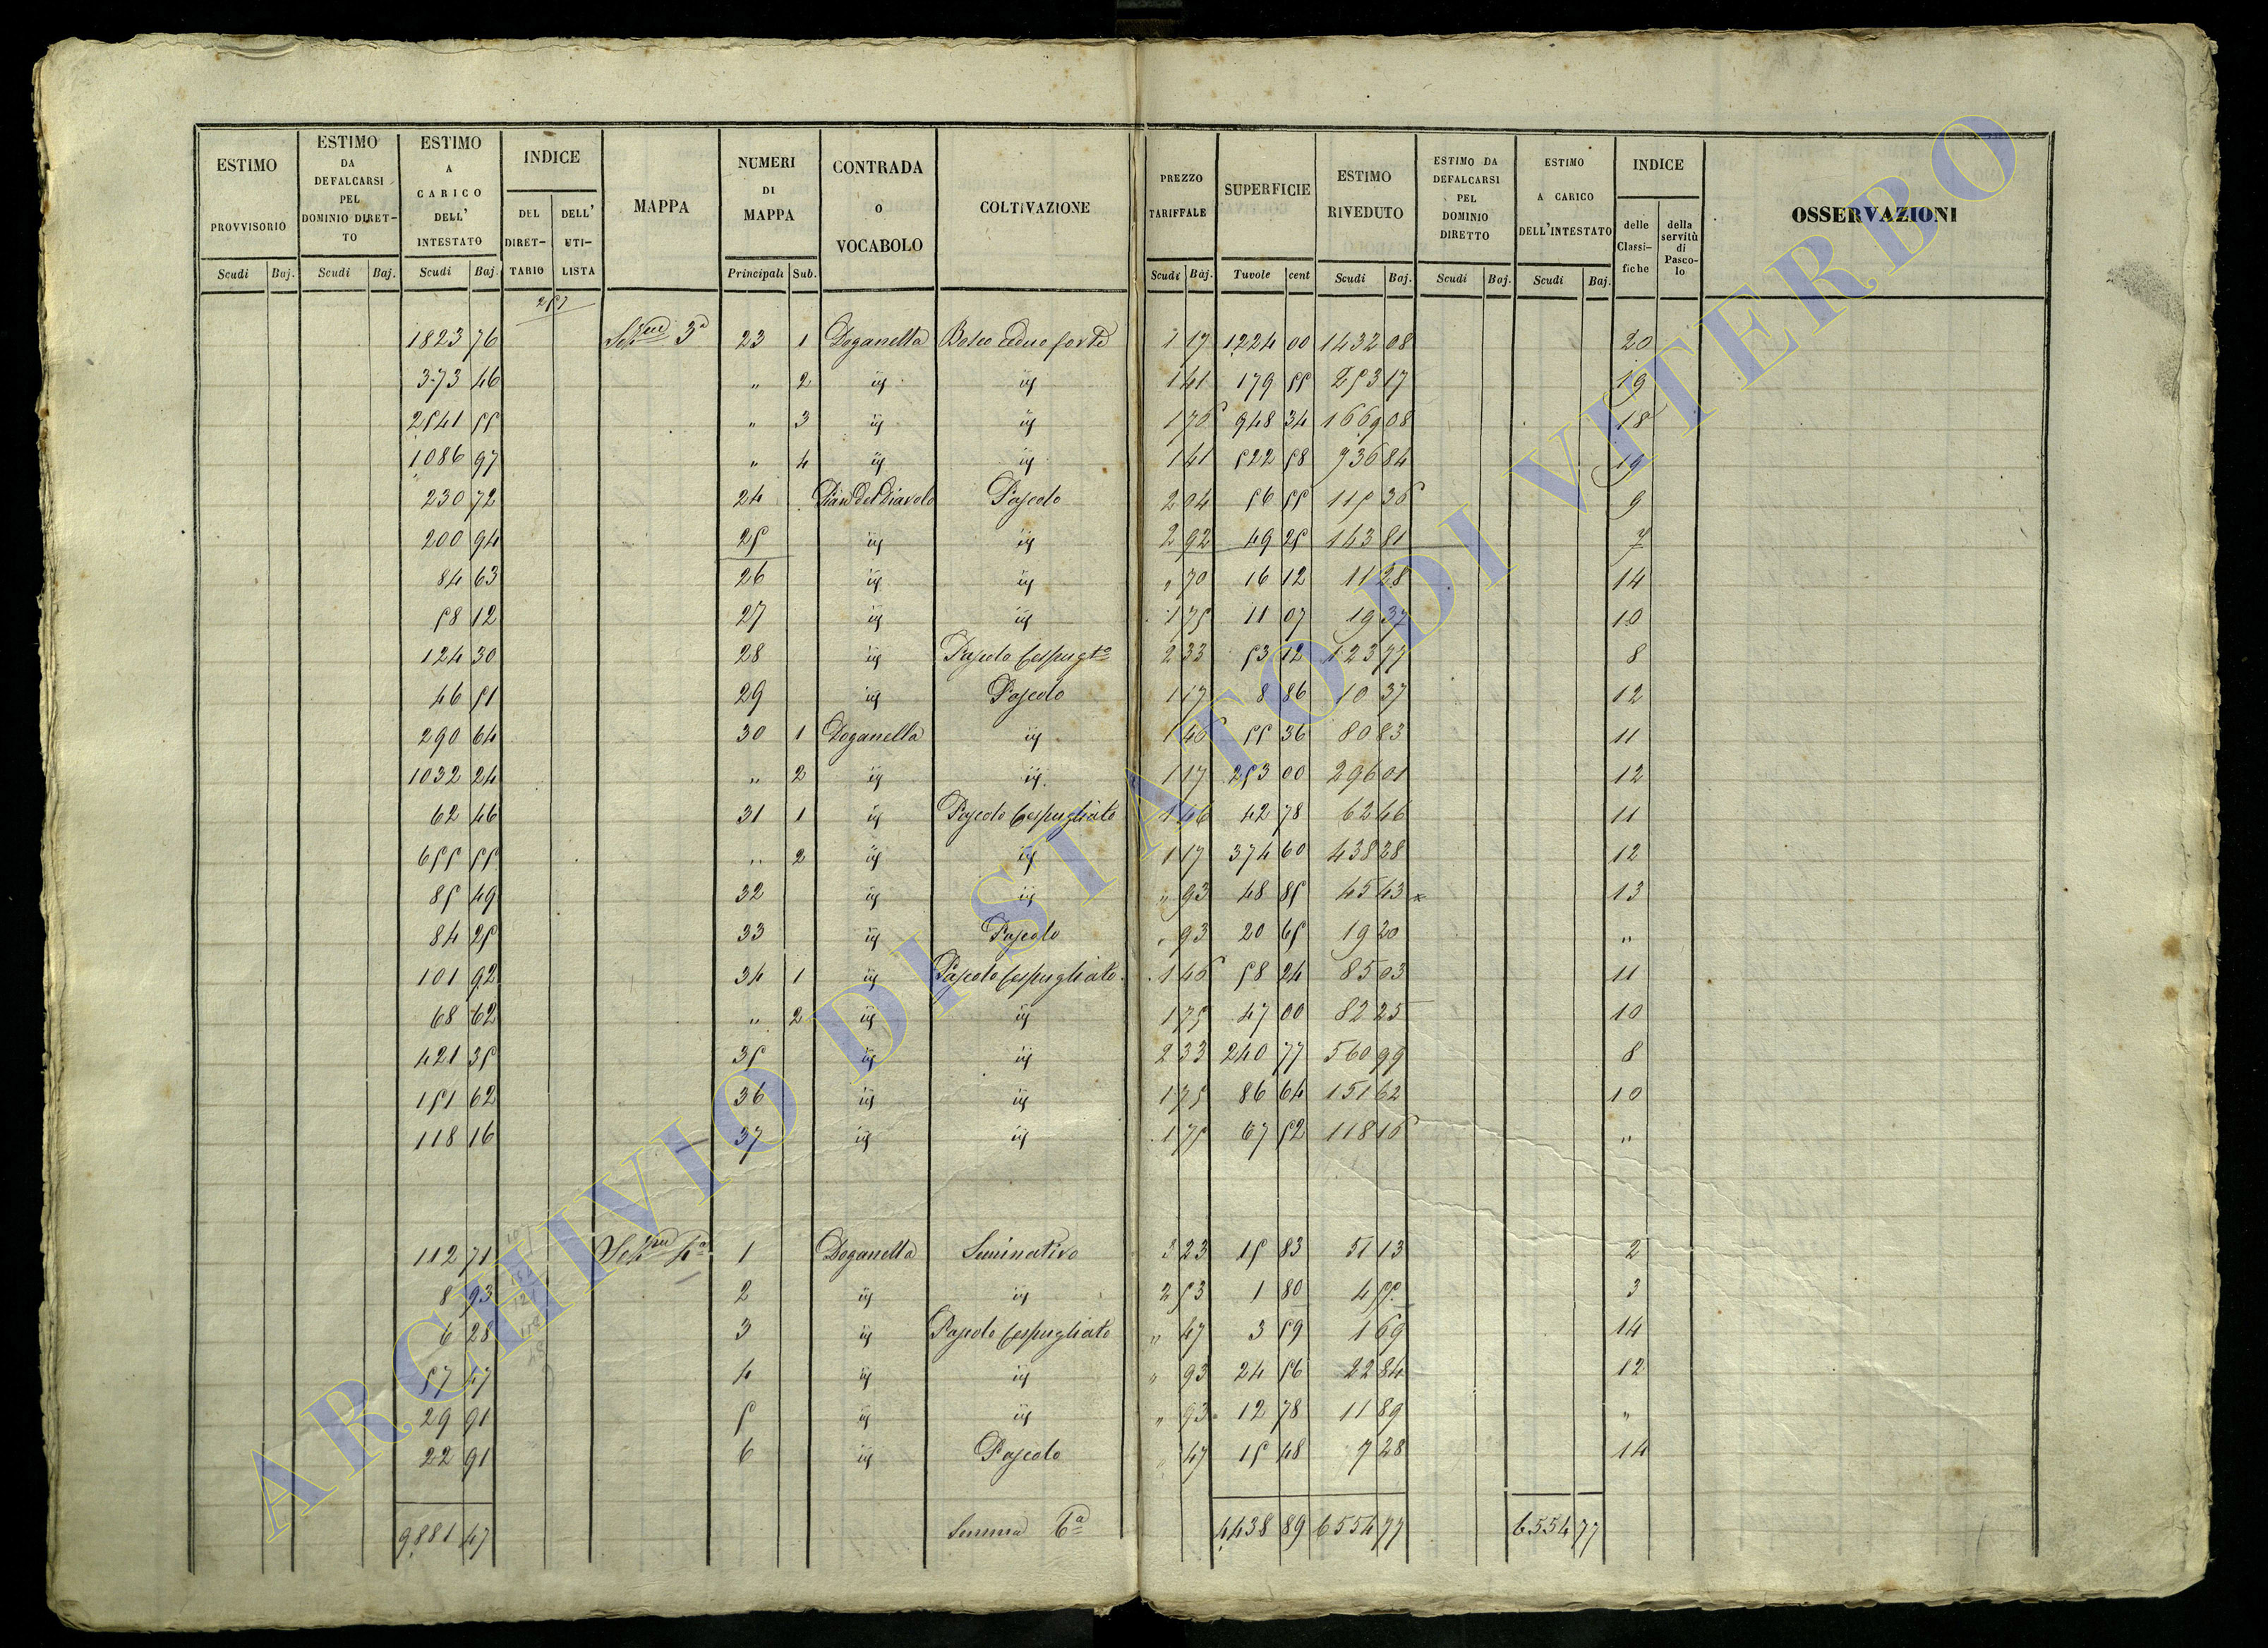 ESTIMO PROVVISORIO Scudi Baj. | ESTIMO DA DEFALCARSI PEL DOMINIO DIRETTO Scudi Baj. | ESTIMO A CARICO DELL' INTESTATO Scudi Baj. | INDICE DEL DIRETTARIO DELL' UTILISTA | MAPPA | NUMERI DI MAPPA Principali Sub. | CONTRADA o VOCABOLO | COLTIVAZIONE | PREZZO TARIFFALE Scudi Baj. | SUPERFICIE Tavole cent | ESTIMO RIVEDUTO Scudi Baj. | ESTIMO DA DEFALCARSI PEL DOMINIO DIRETTO Scudi Baj. | ESTIMO A CARICO DELL'INTESTATO Scudi Baj. | INDICE delle Classifiche della servitù di Pascolo | OSSERVAZIONI
257
1823 76 Sez.ne 3a 23 1 Doganella Bosco ceduo forte 1 17 1224 00 1432 08 20
373 46 " 2 id id 1 41 179 55 253 17 19
2541 55 " 3 id id 1 76 948 34 1669 08 18
1086 97 " 4 id id 1 41 522 58 736 84 19
230 72 24 Pian del Diavolo Pascolo 2 04 56 55 115 36 9
200 94 25 id id 2 92 49 25 143 81 7
84 63 26 id id " 70 16 12 11 28 14
58 12 27 id id 1 75 11 07 19 37 10
124 30 28 id Pascolo Cespugto 2 33 53 12 123 77 8
46 51 29 id Pascolo 1 17 8 86 10 37 12
290 64 30 1 Doganella id 1 46 55 36 80 83 11
1032 24 " 2 id id 1 17 253 00 296 01 12
62 46 31 1 id Pascolo Cespugliato 1 46 42 78 62 46 11
655 55 " 2 id id 1 17 374 60 438 28 12
85 49 32 id id " 93 48 85 45 43 13
84 25 33 id Pascolo " 93 20 65 19 20 "
101 92 34 1 id Pascolo Cespugliato 1 46 58 24 85 03 11
68 62 " 2 id id 1 75 47 00 82 25 10
421 35 35 id id 2 33 240 77 560 99 8
151 62 36 id id 1 75 86 64 151 62 10
118 16 37 id id 1 75 67 52 118 16 "
112 71 Sez.ne 4a 1 Doganella Seminativo 3 23 15 83 51 13 2
8 93 2 id id 2 53 1 80 4 55 3
6 28 3 id Pascolo Cespugliato " 47 3 59 1 69 14
57 47 4 id id " 93 24 56 22 84 12
29 91 5 id id " 93 12 78 11 89 "
22 91 6 id Pascolo " 47 15 48 7 28 14
9881 47 Summa 6a 4438 89 6554 77 6554 77
ARCHIVIO DI STATO DI VITERBO